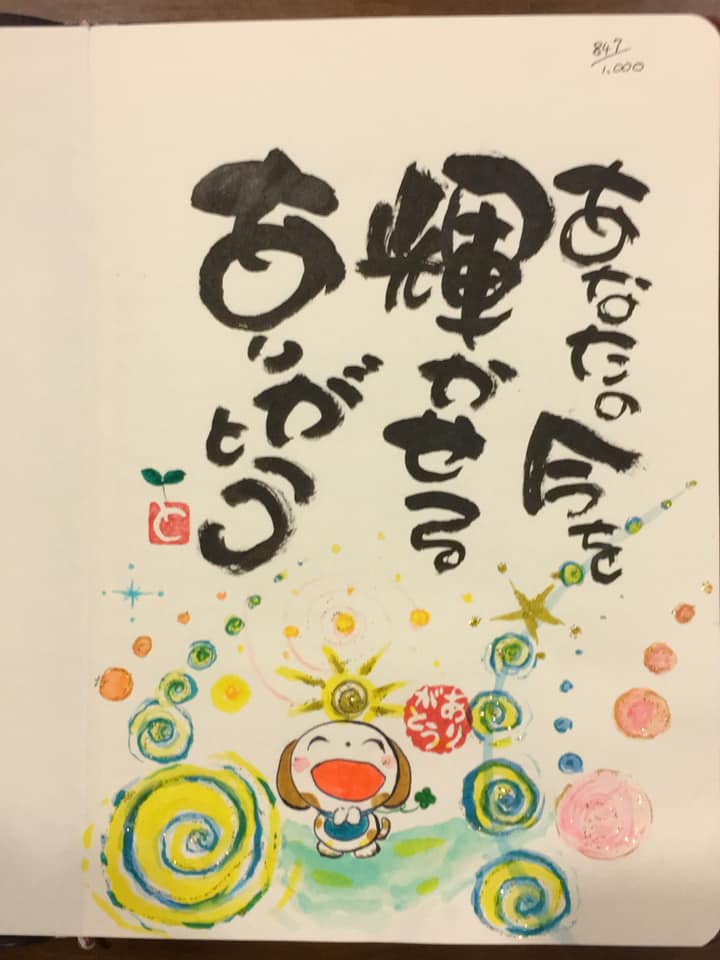 847
1,000
あなたの今を
輝かせる
ありがとう
と
あり
がとう